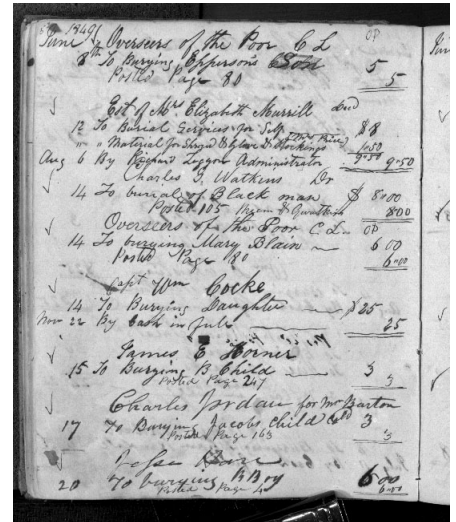 1849
June Overseers of the Poor C L OP
8th To Burying Epperson's Son 5
Posted Page 80 5
Est of Mrs Elizabeth Murrill Decd
12 To Burial Services for Self $8
" Material for & Gloves & Stockings 1.50
Aug 6 By Administrator 9.50 9.50
Charles J. Watkins Dr
14 To burial of Black man $ 8.00
Posted 105 8.00
Overseers of the Poor C. L. OP
14 To burying Mary Blain 6 00
Posted Page 80 6.00
Capt Wm Cocke
14 To Burying Daughter $25
Nov 22 By Cash in full 25
James E Horner
15 To Burying B Child 3
Posted Page 247 3
Charles Jordan for Mr Barton
17 To Burying Jacobs child 3
Posted Page 163 3
20 To burying B Boy 6 00
Posted Page 4 6.00